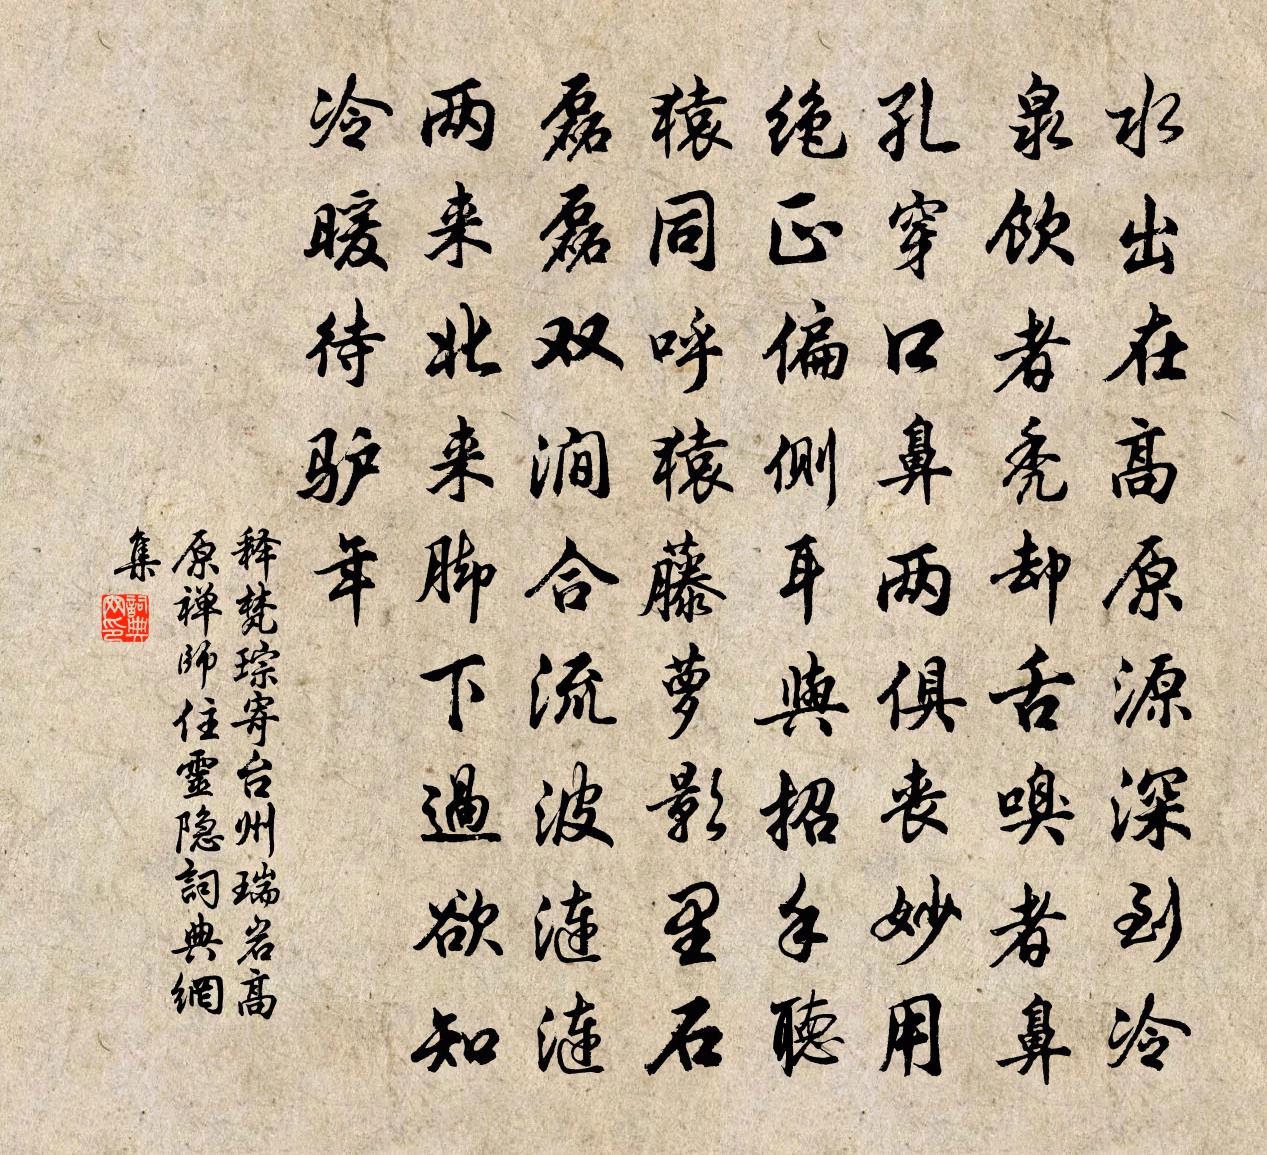 水出在高原源深到冷
泉饮者秃却舌嗅者鼻
孔穿口鼻两俱丧妙用
绝正偏侧耳與招手聴
猿同呼猿藤萝影里石
磊磊双涧合流波涟涟
两来北来脚下過欲知
冷暖待驴年
释梵琮寄台州瑞岩高
原禅師住靈隐詞典網
集
詞典
网印